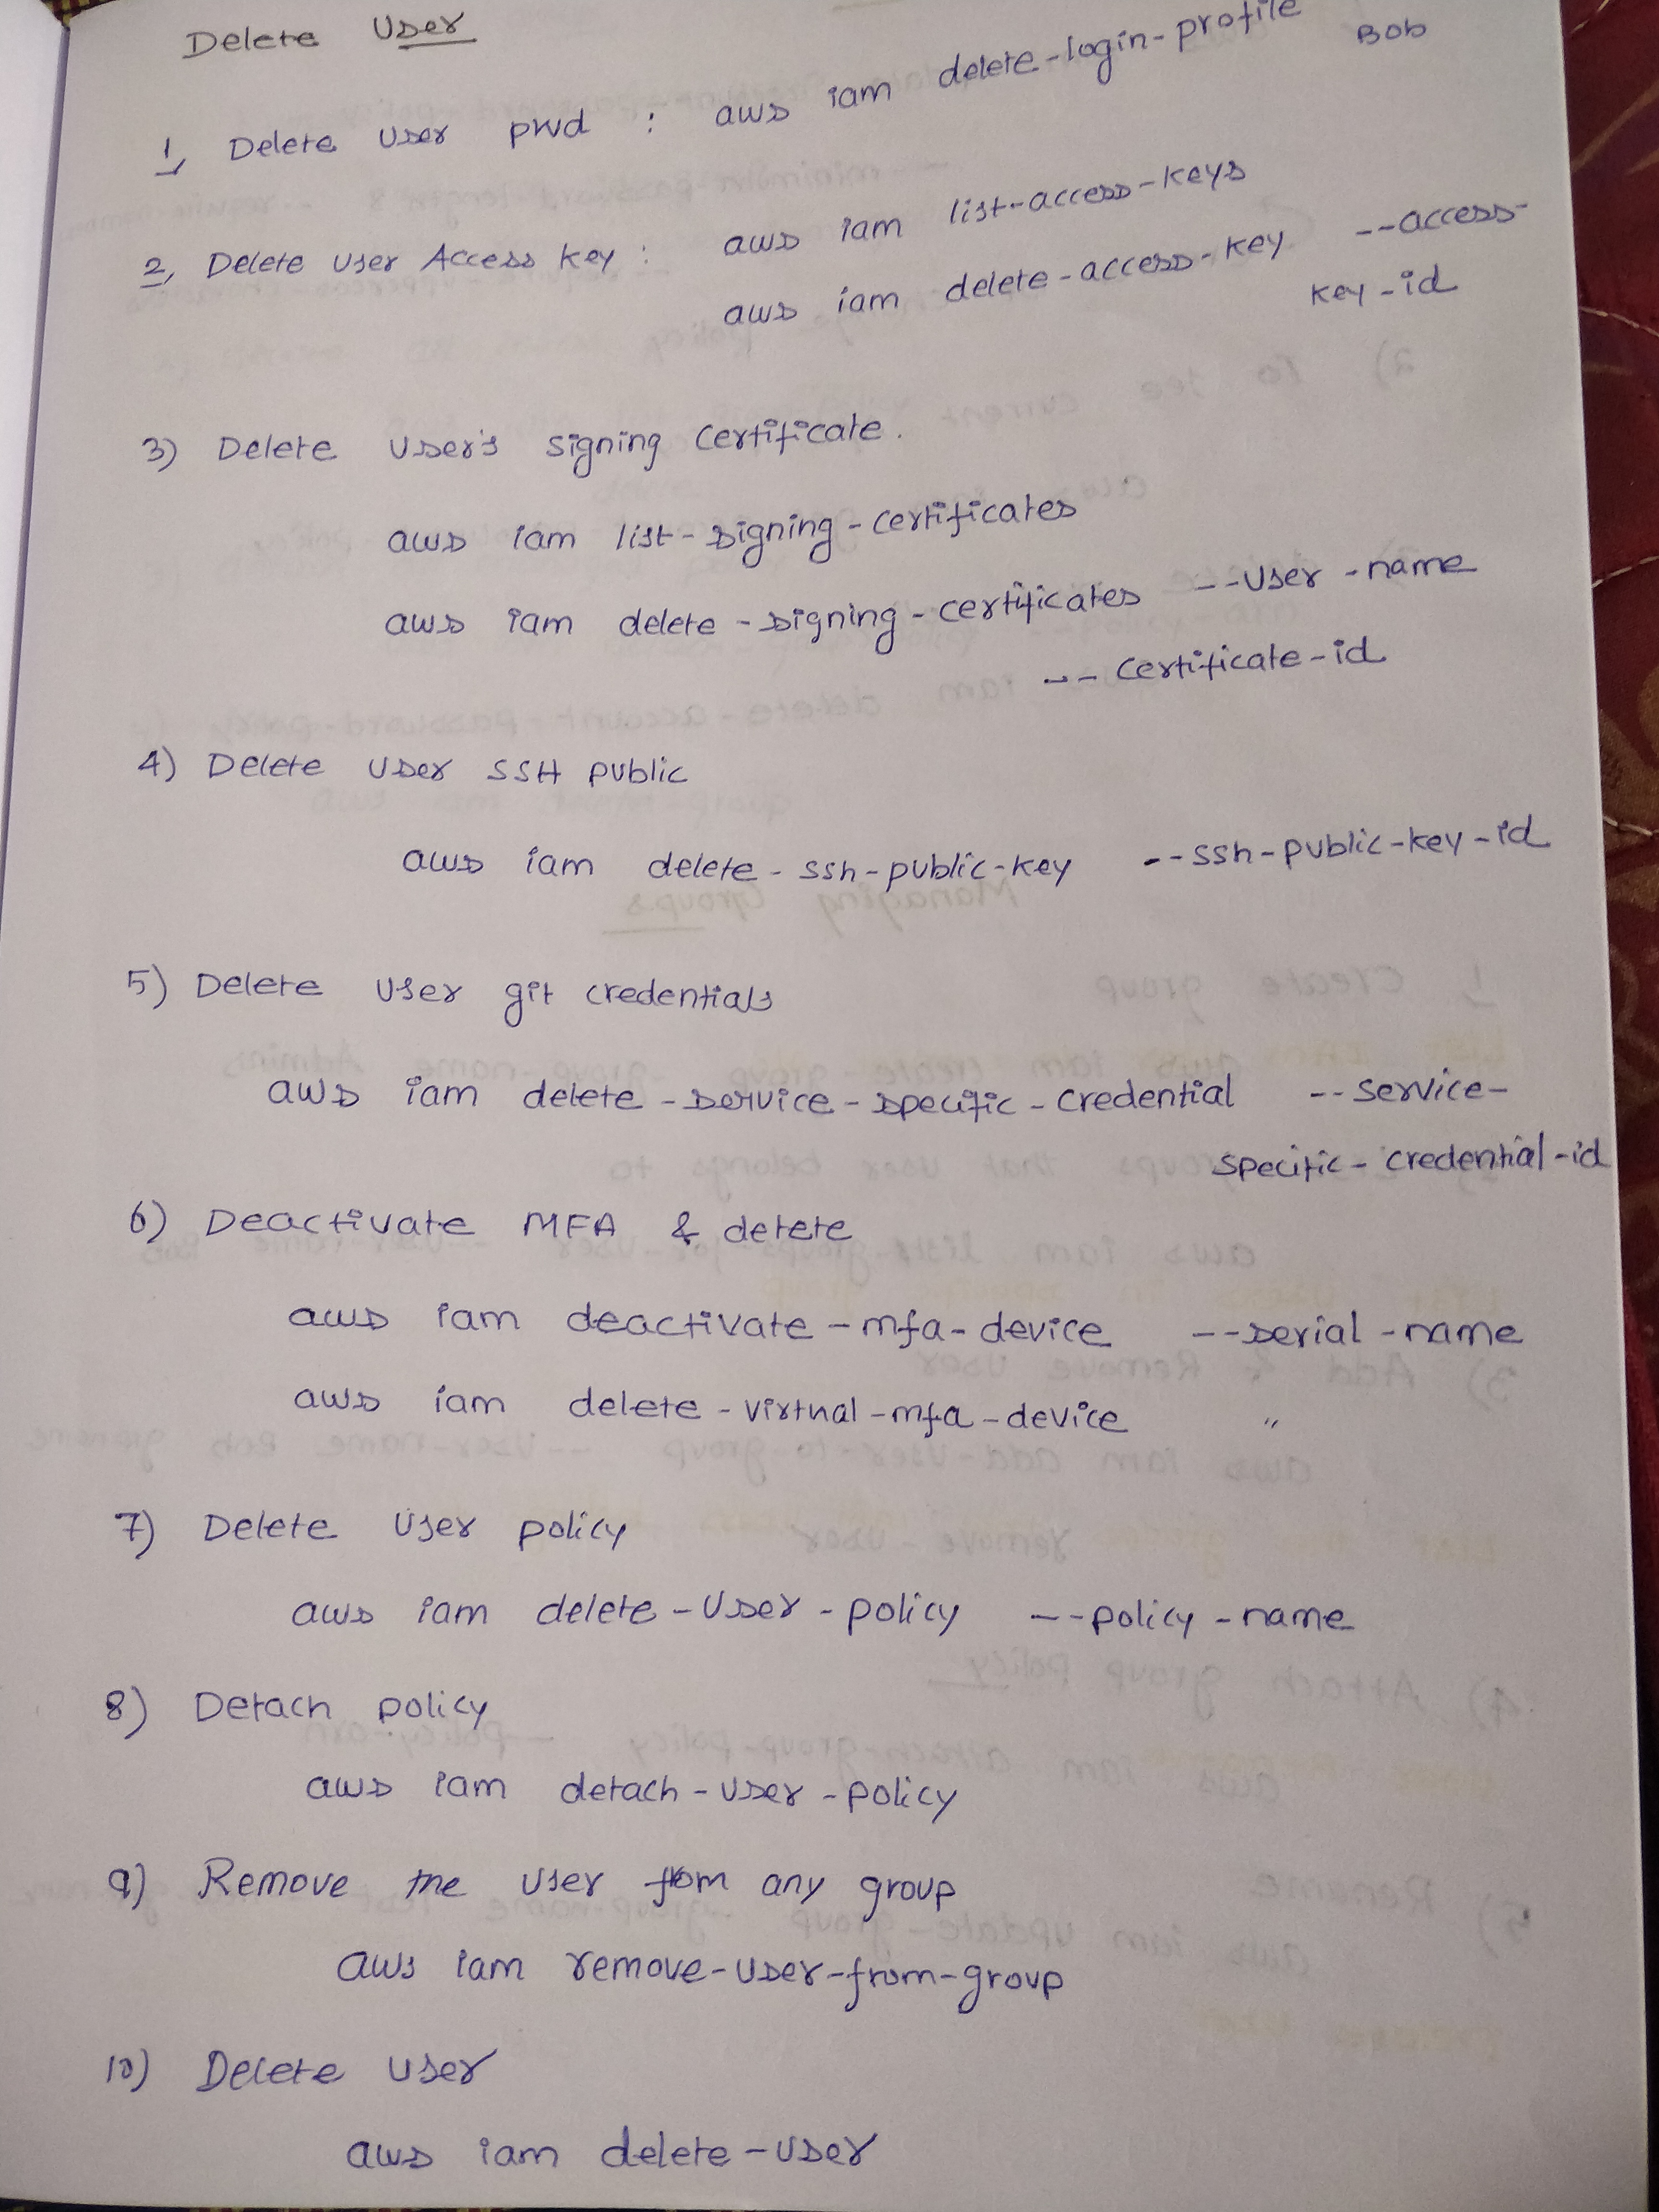 Delete User
1, Delete User pwd : aws iam delete-login-profile Bob
2, Delete User Access key : aws iam list-access-keys
aws iam delete-access-key --access-
key-id
3) Delete User's signing certificate.
aws iam list-signing-certificates
aws iam delete-signing-certificates --User-name
-- certificate-id
4) Delete User SSH public
aws iam delete-ssh-public-key --ssh-public-key-id
5) Delete User git credentials
aws iam delete-service-specific-credential --service-
specific-credential-id
6) Deactivate MFA & delete
aws iam deactivate-mfa-device --serial-name
aws iam delete-virtual-mfa-device "
7) Delete User policy
aws iam delete-User-policy --policy-name
8) Detach policy
aws iam detach-User-policy
9) Remove the User from any group
aws iam remove-User-from-group
10) Delete User
aws iam delete-User